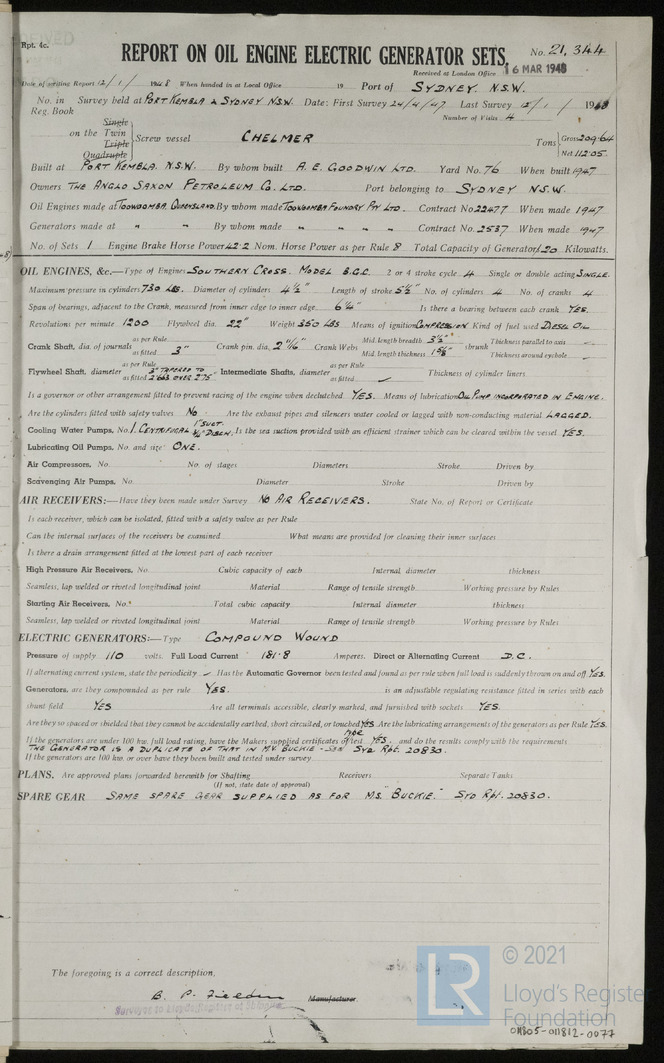 Rpt. 4c.
REPORT ON OIL ENGINE ELECTRIC GENERATOR SETS.
No. 21,344
Received at London Office 16 MAR 1948
Date of writing Report 12/1/1948 When handed in at Local Office 19 Port of SYDNEY. N.S.W.
No. in Reg. Book Survey held at PORT KEMBLA & SYDNEY N.S.W. Date: First Survey 24/4/47. Last Survey 12/1/1948
Number of Visits 4
on the Single Twin Triple Quadruple Screw vessel CHELMER Tons Gross 209.64 Net 112.05
Built at PORT KEMBLA. N.S.W. By whom built A. E. GOODWIN LTD. Yard No. 76 When built 1947
Owners THE ANGLO SAXON PETROLEUM CO. LTD. Port belonging to SYDNEY N.S.W.
Oil Engines made at TOOWOOMBA. QUEENSLAND. By whom made TOOWOOMBA FOUNDRY PTY LTD. Contract No. 22477 When made 1947
Generators made at " " By whom made " " " " Contract No. 2537 When made 1947
No. of Sets 1 Engine Brake Horse Power 42.2 Nom. Horse Power as per Rule 8 Total Capacity of Generators 20 Kilowatts.
OIL ENGINES, &c.—Type of Engines SOUTHERN CROSS. MODEL B.G.C. 2 or 4 stroke cycle 4 Single or double acting SINGLE.
Maximum pressure in cylinders 730 LBS. Diameter of cylinders 4½" Length of stroke 5½" No. of cylinders 4 No. of cranks 4
Span of bearings, adjacent to the Crank, measured from inner edge to inner edge 6¼" Is there a bearing between each crank YES.
Revolutions per minute 1200 Flywheel dia. 22" Weight 350 LBS Means of ignition COMPRESSION Kind of fuel used DIESEL OIL
Crank Shaft, dia. of journals as per Rule as fitted 3" Crank pin. dia. 2 11/16" Crank Webs Mid. length breadth 3½" Mid. length thickness shrunk Thickness parallel to axis – Thickness around eyehole –
Flywheel Shaft, diameter as per Rule as fitted 3" TAPERED TO OVER 2.75" Intermediate Shafts, diameter as per Rule as fitted – Thickness of cylinder liners
Is a governor or other arrangement fitted to prevent racing of the engine when declutched YES. Means of lubrication OIL PUMP INCORPORATED IN ENGINE.
Are the cylinders fitted with safety valves NO. Are the exhaust pipes and silencers water cooled or lagged with non-conducting material LAGGED.
Cooling Water Pumps, No. 1. CENTRIFUGAL 1" SUCT. ¾" DISCH. Is the sea suction provided with an efficient strainer which can be cleared within the vessel YES.
Lubricating Oil Pumps, No. and size ONE.
Air Compressors, No. No. of stages Diameters Stroke Driven by
Scavenging Air Pumps, No. Diameter Stroke Driven by
AIR RECEIVERS:—Have they been made under Survey NO AIR RECEIVERS. State No. of Report or Certificate
Is each receiver, which can be isolated, fitted with a safety valve as per Rule
Can the internal surfaces of the receivers be examined What means are provided for cleaning their inner surfaces
Is there a drain arrangement fitted at the lowest part of each receiver
High Pressure Air Receivers, No. Cubic capacity of each Internal diameter thickness
Seamless, lap welded or riveted longitudinal joint Material Range of tensile strength Working pressure by Rules
Starting Air Receivers, No. Total cubic capacity Internal diameter thickness
Seamless, lap welded or riveted longitudinal joint Material Range of tensile strength Working pressure by Rules
ELECTRIC GENERATORS:—Type COMPOUND WOUND
Pressure of supply 110 volts. Full Load Current 181.8 Amperes. Direct or Alternating Current D.C.
If alternating current system, state the periodicity – Has the Automatic Governor been tested and found as per rule when full load is suddenly thrown on and off YES.
Generators, are they compounded as per rule YES. is an adjustable regulating resistance fitted in series with each
shunt field YES Are all terminals accessible, clearly marked, and furnished with sockets YES.
Are they so spaced or shielded that they cannot be accidentally earthed, short circuited, or touched YES Are the lubricating arrangements of the generators as per Rule YES.
If the generators are under 100 kw. full load rating, have the Makers supplied certificates of type test YES. and do the results comply with the requirements
THE GENERATOR IS A DUPLICATE OF THAT IN M.V. BUCKIE - SEE SYD Rpt. 20830.
If the generators are 100 kw. or over have they been built and tested under survey
PLANS. Are approved plans forwarded herewith for Shafting Receivers Separate Tanks
(If not, state date of approval)
SPARE GEAR SAME SPARE GEAR SUPPLIED AS FOR M.S. "BUCKIE." SYD Rpt. 20830.
The foregoing is a correct description,
B. P. Fielden Manufacturer
Surveyor to Lloyd's Register of Shipping
LR
© 2021
Lloyd's Register
Foundation
011805-011812-0077